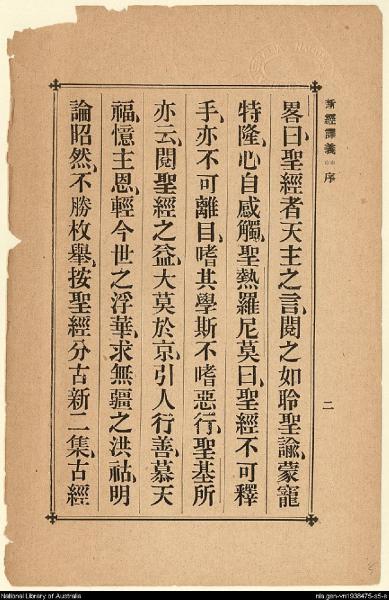 新經譯義 序
二
畧曰聖經者天主之言、閱之如聆聖諭、蒙寵
特隆、心自感觸、聖熱羅尼莫曰、聖經不可釋
手、亦不可離目、嗜其學斯不嗜惡行、聖基所
亦云、閱聖經之益、大莫於京、引人行善、慕天
福、憶主恩、輕今世之浮華、求無疆之洪祜、明
論昭然、不勝枚舉、按聖經分古新二集、古經
National Library of Australia
nla.gen-vn1938475-s5-e